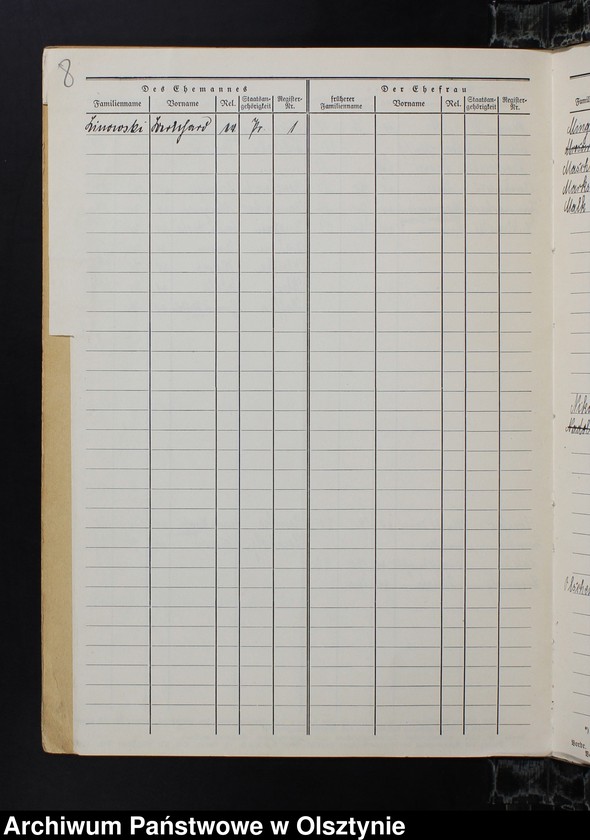 8
Des Ehemannes Der Ehefrau
Familienname Vorname Rel. Staatsan-gehörigkeit Register-Nr. früherer Familienname Vorname Rel. Staatsan-gehörigkeit Register-Nr.
Linowski ev Pr 1
Archiwum Państwowe w Olsztynie